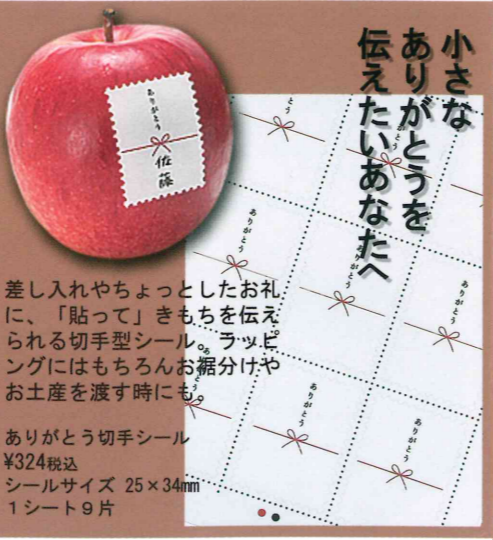 小さな
ありがとうを
伝えたいあなたへ
ありがとう
佐藤
ありがとう
ありがとう
ありがとう
ありがとう
ありがとう
ありがとう
差し入れやちょっとしたお礼
に、「貼って」きもちを伝え
られる切手型シール。ラッピ
ングにはもちろんお裾分けや
お土産を渡す時にも。
ありがとう切手シール
¥324税込
シールサイズ 25×34㎜
1シート9片